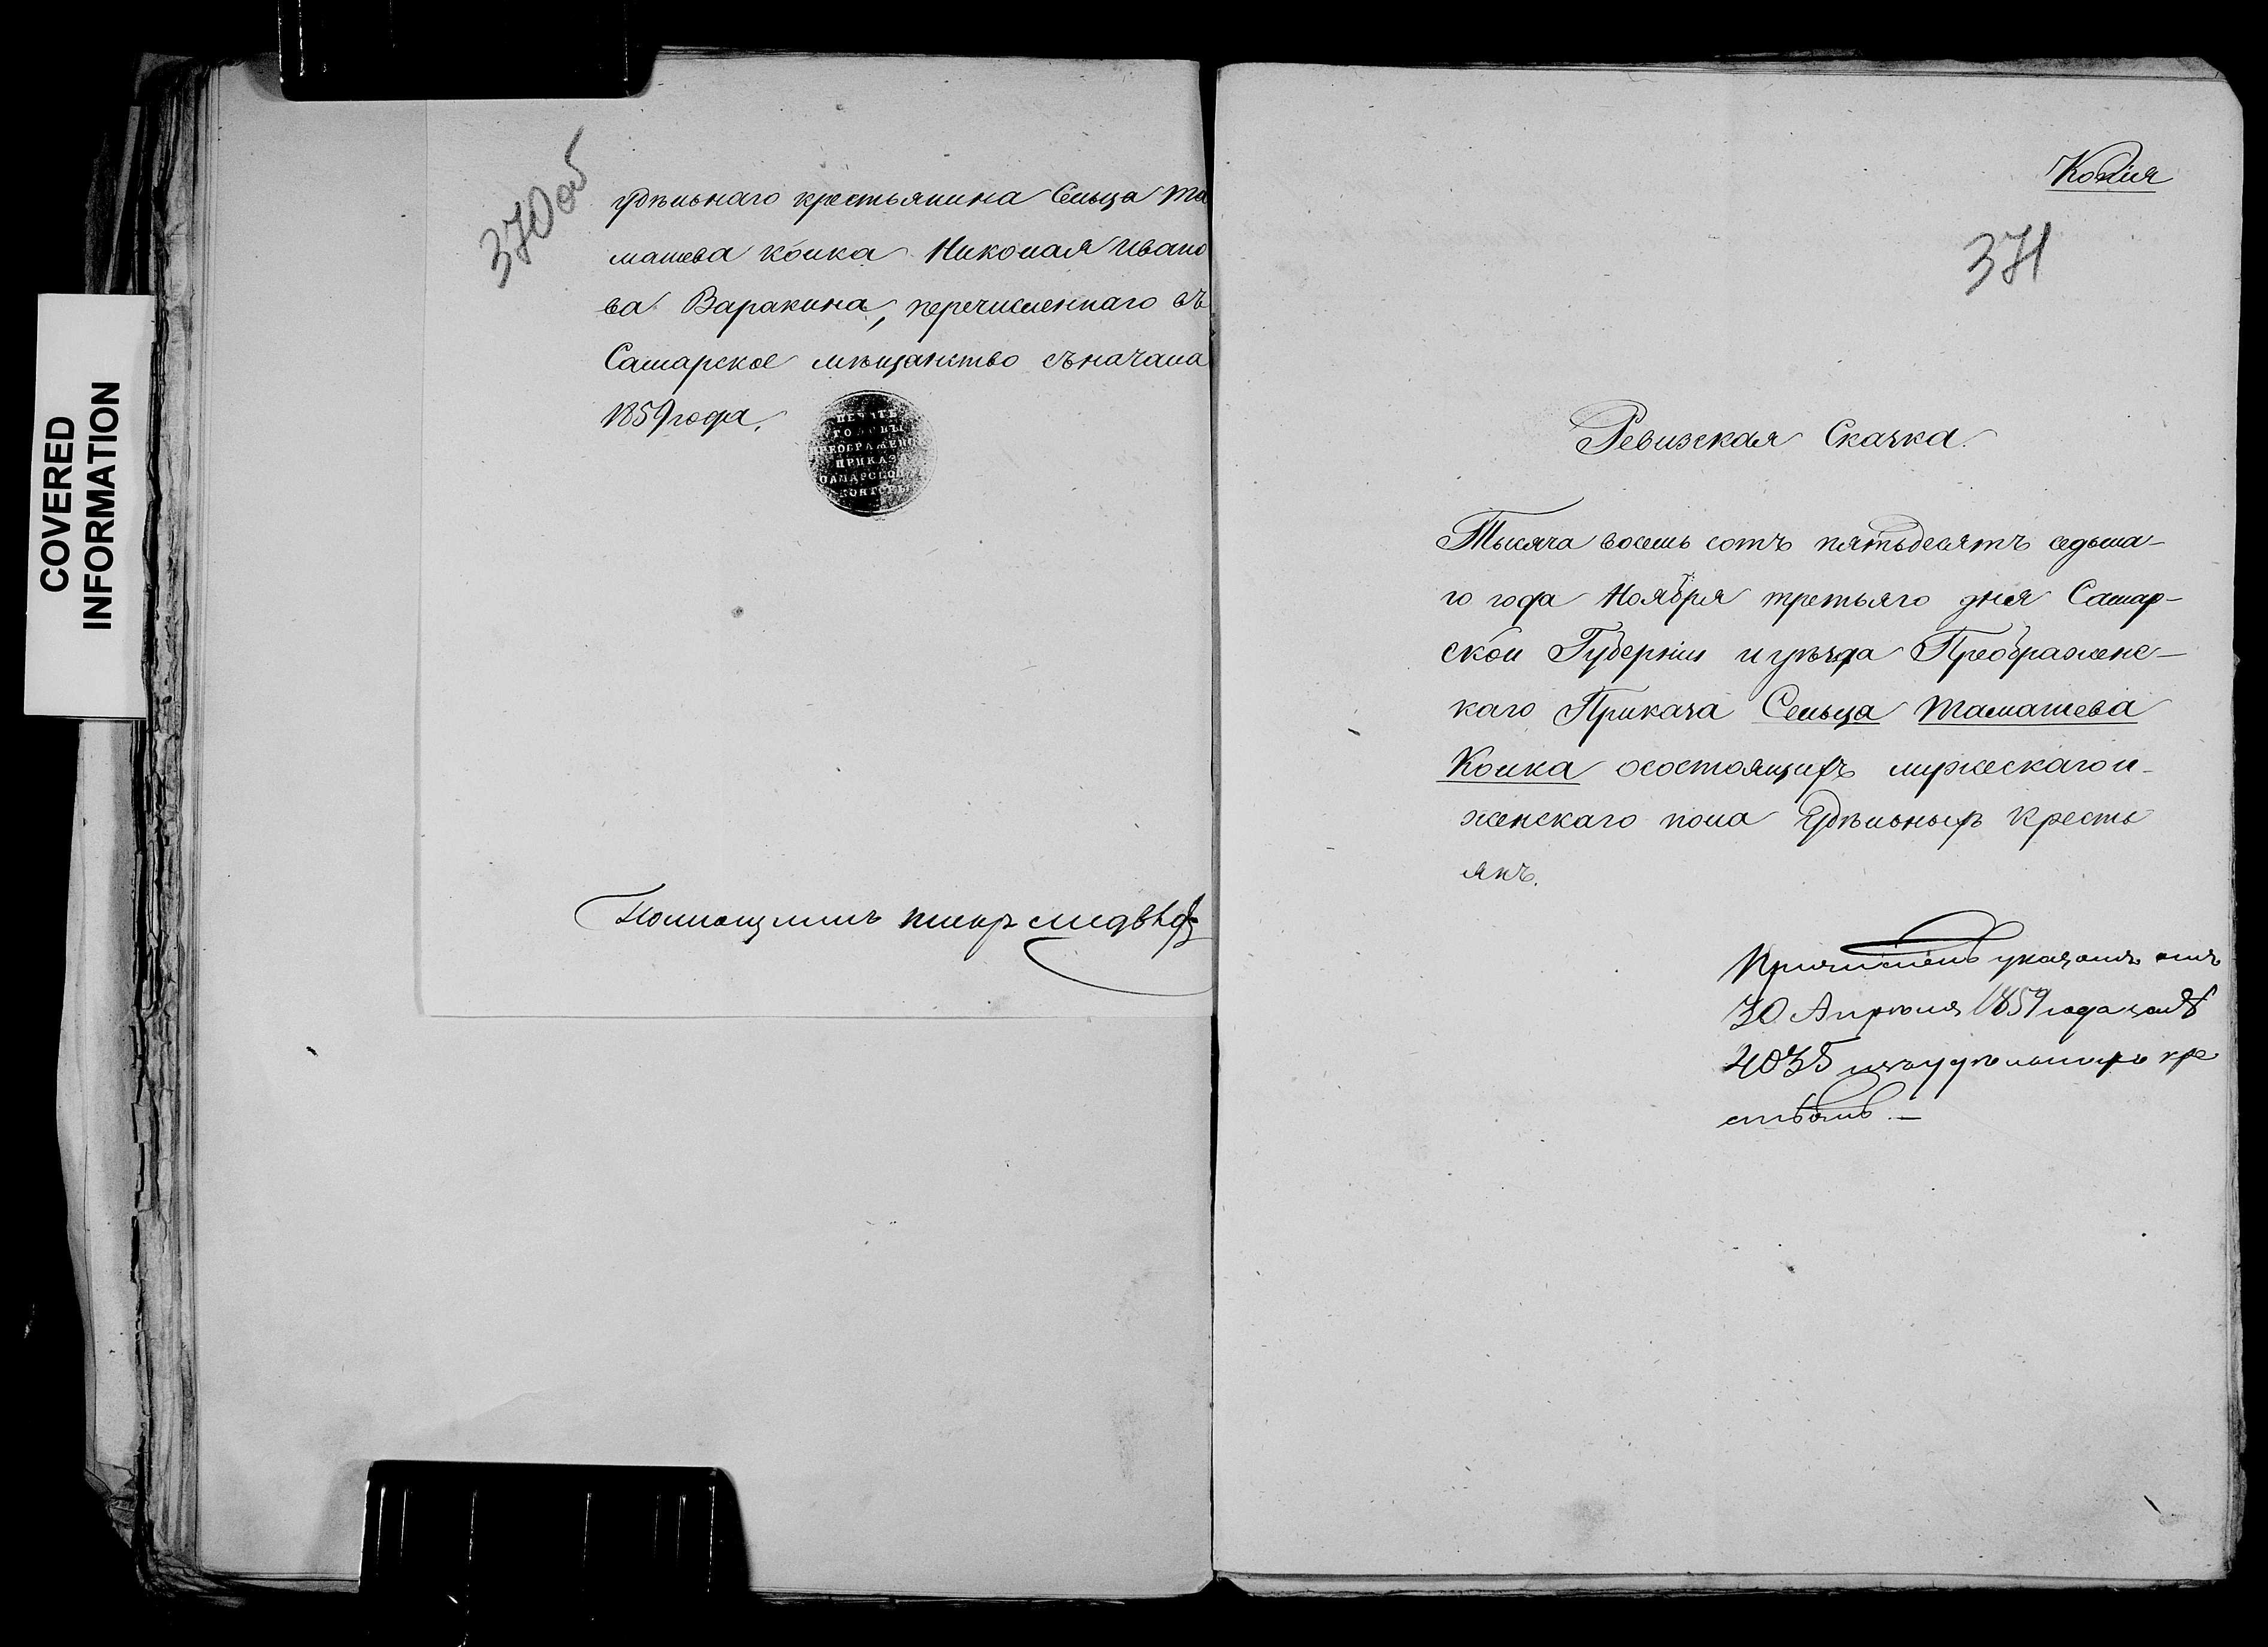 COVERED
INFORMATION
370 об
удѣльнаго крестьянина Сельца Та
машева колка Николая Ивано
ва Варакина, перечисленнаго въ
Самарское мѣщанство съ начала
1859 года.
ПЕЧАТЬ
ГОЛОВЫ
ПРЕОБРАЖЕНС
ПРИКАЗА
САМАРСКОЙ
КОНТОРЫ
Копія
371
Ревизская Сказка.
Тысяча восемь сотъ пятьдесятъ седьма-
го года Ноября третьяго дня Самар-
ской Губерніи и уѣзда Преображенс-
каго Приказа Сельца Тамашева
Колка о состоящихъ мужескаго и
женскаго пола Удѣльныхъ кресть
янъ.
Причисленъ указомъ отъ
30 Апрѣля 1859 года за №
4035 изъ удѣльныхъ кре
стьянъ. —